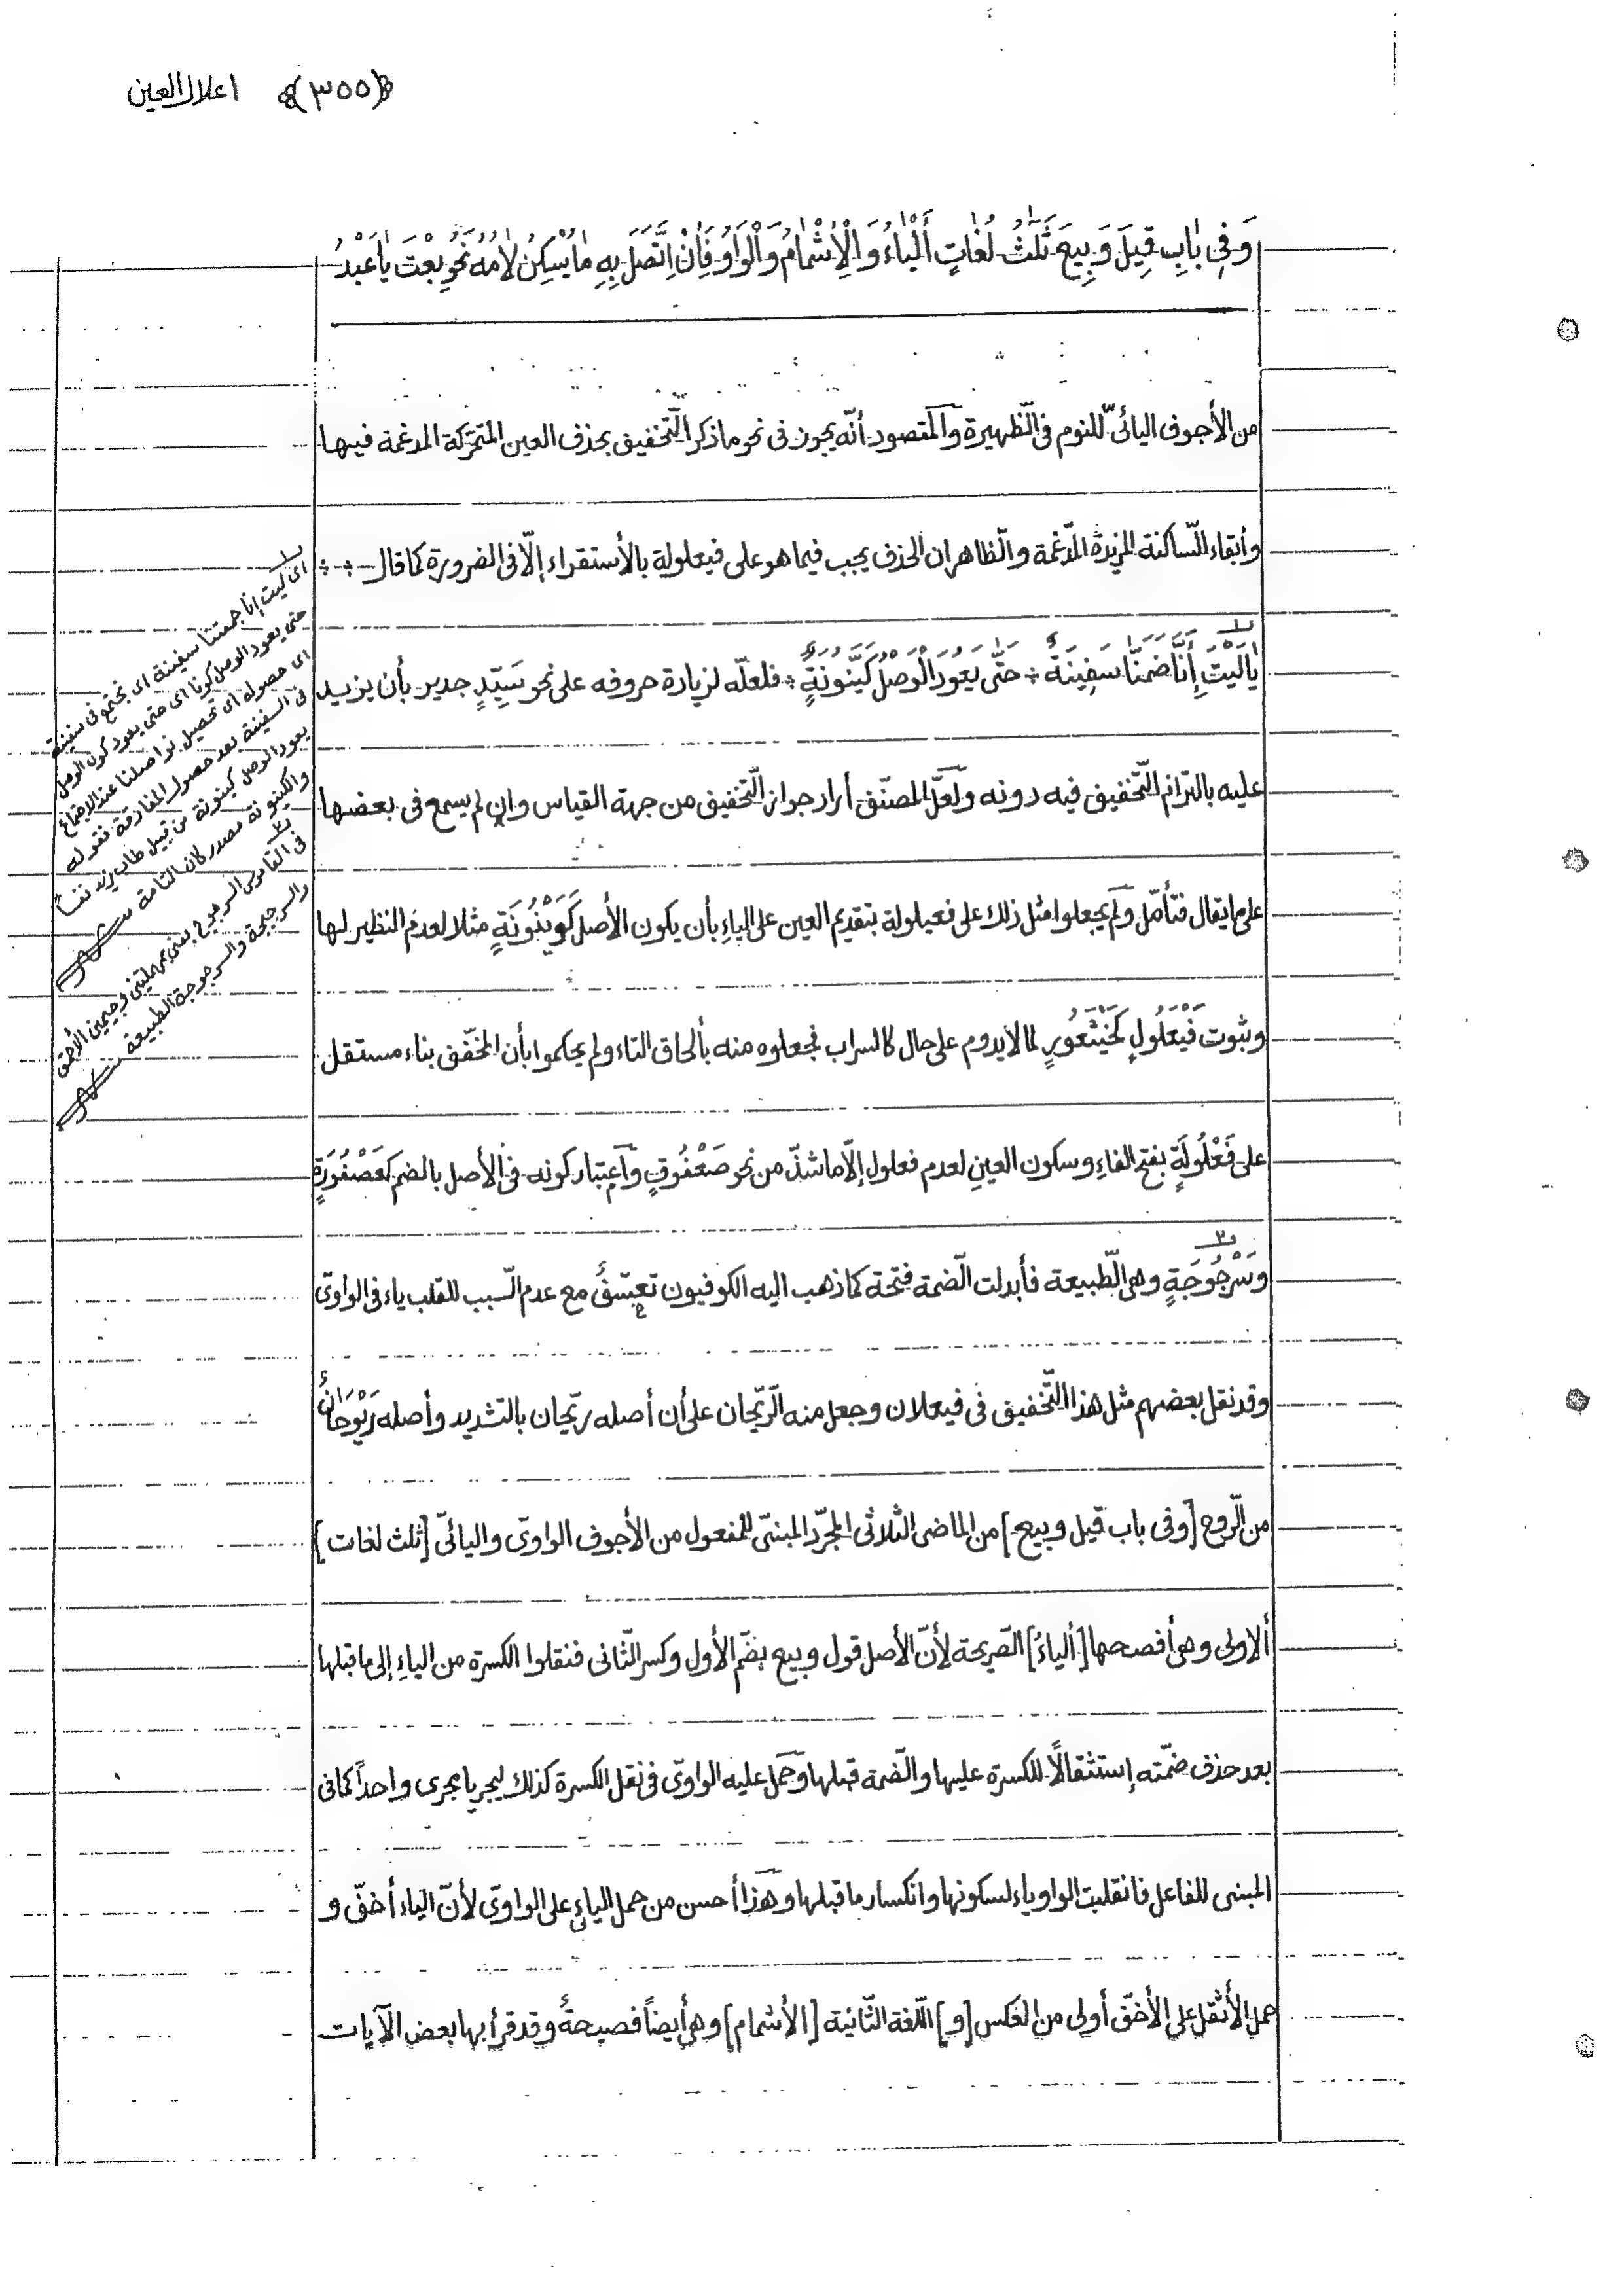 ﴿٣٥٥﴾ اعلال العين
وَفِى بٰابِ قِيلَ وَبِيعَ ثَلٰثُ لُغٰاتٍ أَلْيٰاءُ وَالْإِشْمٰامُ وَالْوٰاوُ فَإِنْ اِتَّصَلَ بِهِ مٰا يُسْكِنُ لٰامُهُ نَحْوُ بِعْتَ يٰا عَبْدُ
من الأجوف اليائىّ للنوم فى الظّهيرة والمقصود أنّه يجوز فى نحو ما ذكر التّخفيف بحذف العين المتحرّكة المدغمة فيها
وأبقاء السّاكنة المزيدة المدّغمة والظّاهر ان الحذف يجب فيما هو على فيعلولة بالأستقراء إلّا فى الضرورة كما قال
يٰا لَيْتَ إِنَّا ضَمَّنَا سَفِينَةٌ * حَتّٰى يَعُودَ الْوَصْلُ كَيَّنُونَةٍ * فلعلّه لزيادة حروفه على نحو سَيِّدٍ جدير بأن يزيد
عليه بالتزام التّخفيف فيه دونه ولعلّ المصنّف أراد جواز التّخفيف من جهة القياس وان لم يسمع فى بعضها
على ما يقال فتأمّل ولم يجعلوا مثل ذلك على فعيلولة بتقديم العين على الياءِ بأن يكون الأصل كَوَيْنُونَةٍ مثلا لعدم النظير لها
وثبوت فَيْعَلُولٍ كَخَيْتَعُورٍ لما لا يدوم على حال كالسراب فجعلوه منه بألحاق التاء ولم يحكموا بأن المخفّف بناء مستقل
على فَعْلُولَةٍ بفتح الفاءِ وسكون العينِ لعدم فعلول إلّا ما شذّ من نحو صَعْفُوقٍ واعتبار كونه فى الأصل بالضم كعَصْفُورَةٍ
وسَرْجُوجَةٍ وهى الطّبيعة فأبدلت الضّمة فتحة كما ذهب اليه الكوفيون تعسّفٌ مع عدم السّبب للقلب ياء فى الواوىّ
وقد نقل بعضهم مثل هذا التّخفيف فى فيعلان وجعل منه الرّيحان على أن أصله ريّحان بالتشديد وأصله رَيْوَحَانٌ
من الرّوح [وفى باب قيل وبيع] من الماضى الثلاثى المجرّد المبنىّ للمفعول من الأجوف الواوىّ واليائىّ [ثلث لغات]
ألاولى وهى أفصحها [ألياءُ] الصّريحة لأنّ الأصل قول وبيع بضّم الأول وكسر الثّانى فنقلوا الكسرة من الياءِ إلى ما قبلها
بعد حذف ضمّته إستثقالًا للكسرة عليها والضّمة قبلها وحمل عليه الواوىّ فى نقل الكسرة كذلك ليجريا مجرى واحداً كما فى
المبنى للفاعل فانقلبت الواو ياء لسكونها وانكسار ما قبلها وهذا أحسن من حمل اليائى على الواوىّ لأنّ الياء أخفّ و
حمل الأثقل على الأخفّ أولى من العكس [و] اللّغة الثّانية [الأشمام] وهى أيضاً فصيحةٌ وقد قرأ بها بعض الآيات
اى ليت إنا جمعتنا سفينة اى نجتمع فى سفينة
حتى يعود الوصل كونا اى حتى يعود كون الوصل
اى حصوله اى تحصيل تواصلنا عند الاجتماع
فى السفينة بعد حصول المفارقة فقوله
يعود الوصل كينونة من قبيل طاب زيد نفساً
والكينونة مصدر كان التامة
فى القاموس السرجوج بمهملتين وجيمين الأحمق
والسرجيجة والسرجوجة الطبيعة